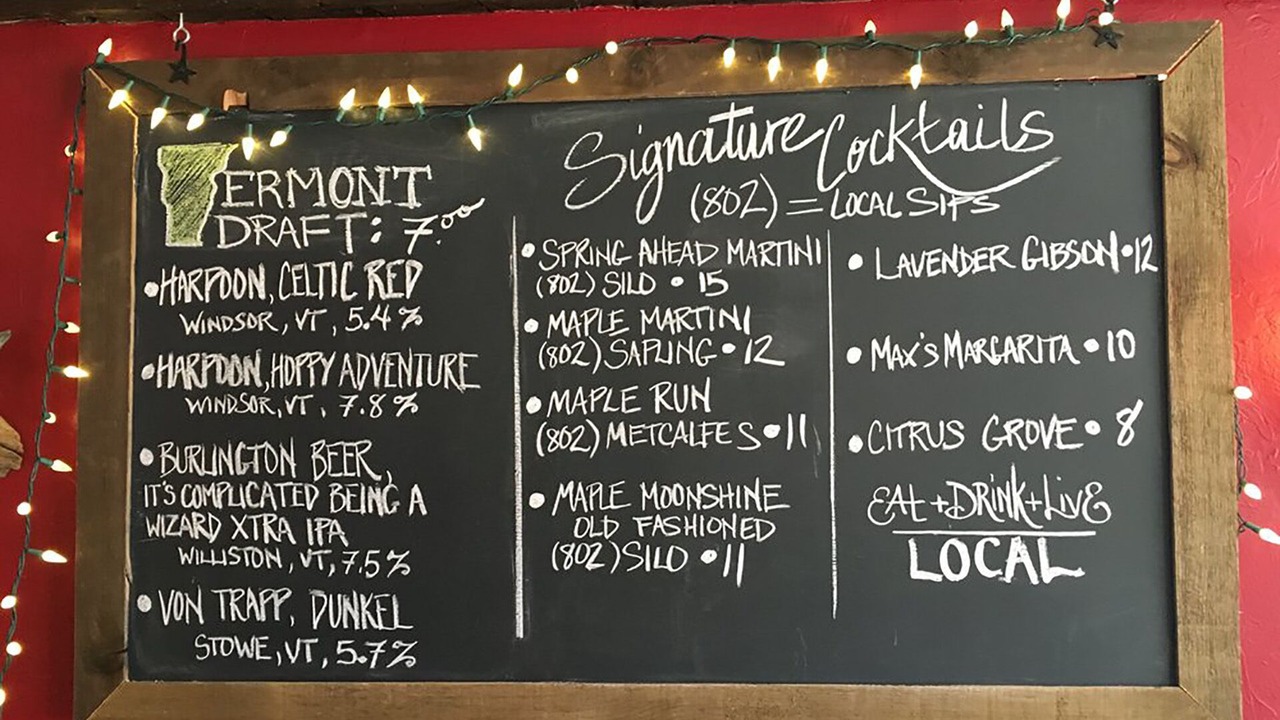 VERMONT
DRAFT: 7.00
• HARPOON, CELTIC RED
WINDSOR, VT, 5.4%
• HARPOON, HOPPY ADVENTURE
WINDSOR, VT, 7.8%
• BURLINGTON BEER,
IT'S COMPLICATED BEING A
WIZARD XTRA IPA
WILLISTON, VT, 7.5%
• VON TRAPP, DUNKEL
STOWE, VT, 5.7%
Signature Cocktails
(802) = LOCAL SIPS
• SPRING AHEAD MARTINI
(802) SILO • 15
• MAPLE MARTINI
(802) SAPLING • 12
• MAPLE RUN
(802) METCALFES • 11
• MAPLE MOONSHINE
OLD FASHIONED
(802) SILO • 11
• LAVENDER GIBSON • 12
• MAX'S MARGARITA • 10
• CITRUS GROVE • 8
EAT + DRINK + LIVE
LOCAL